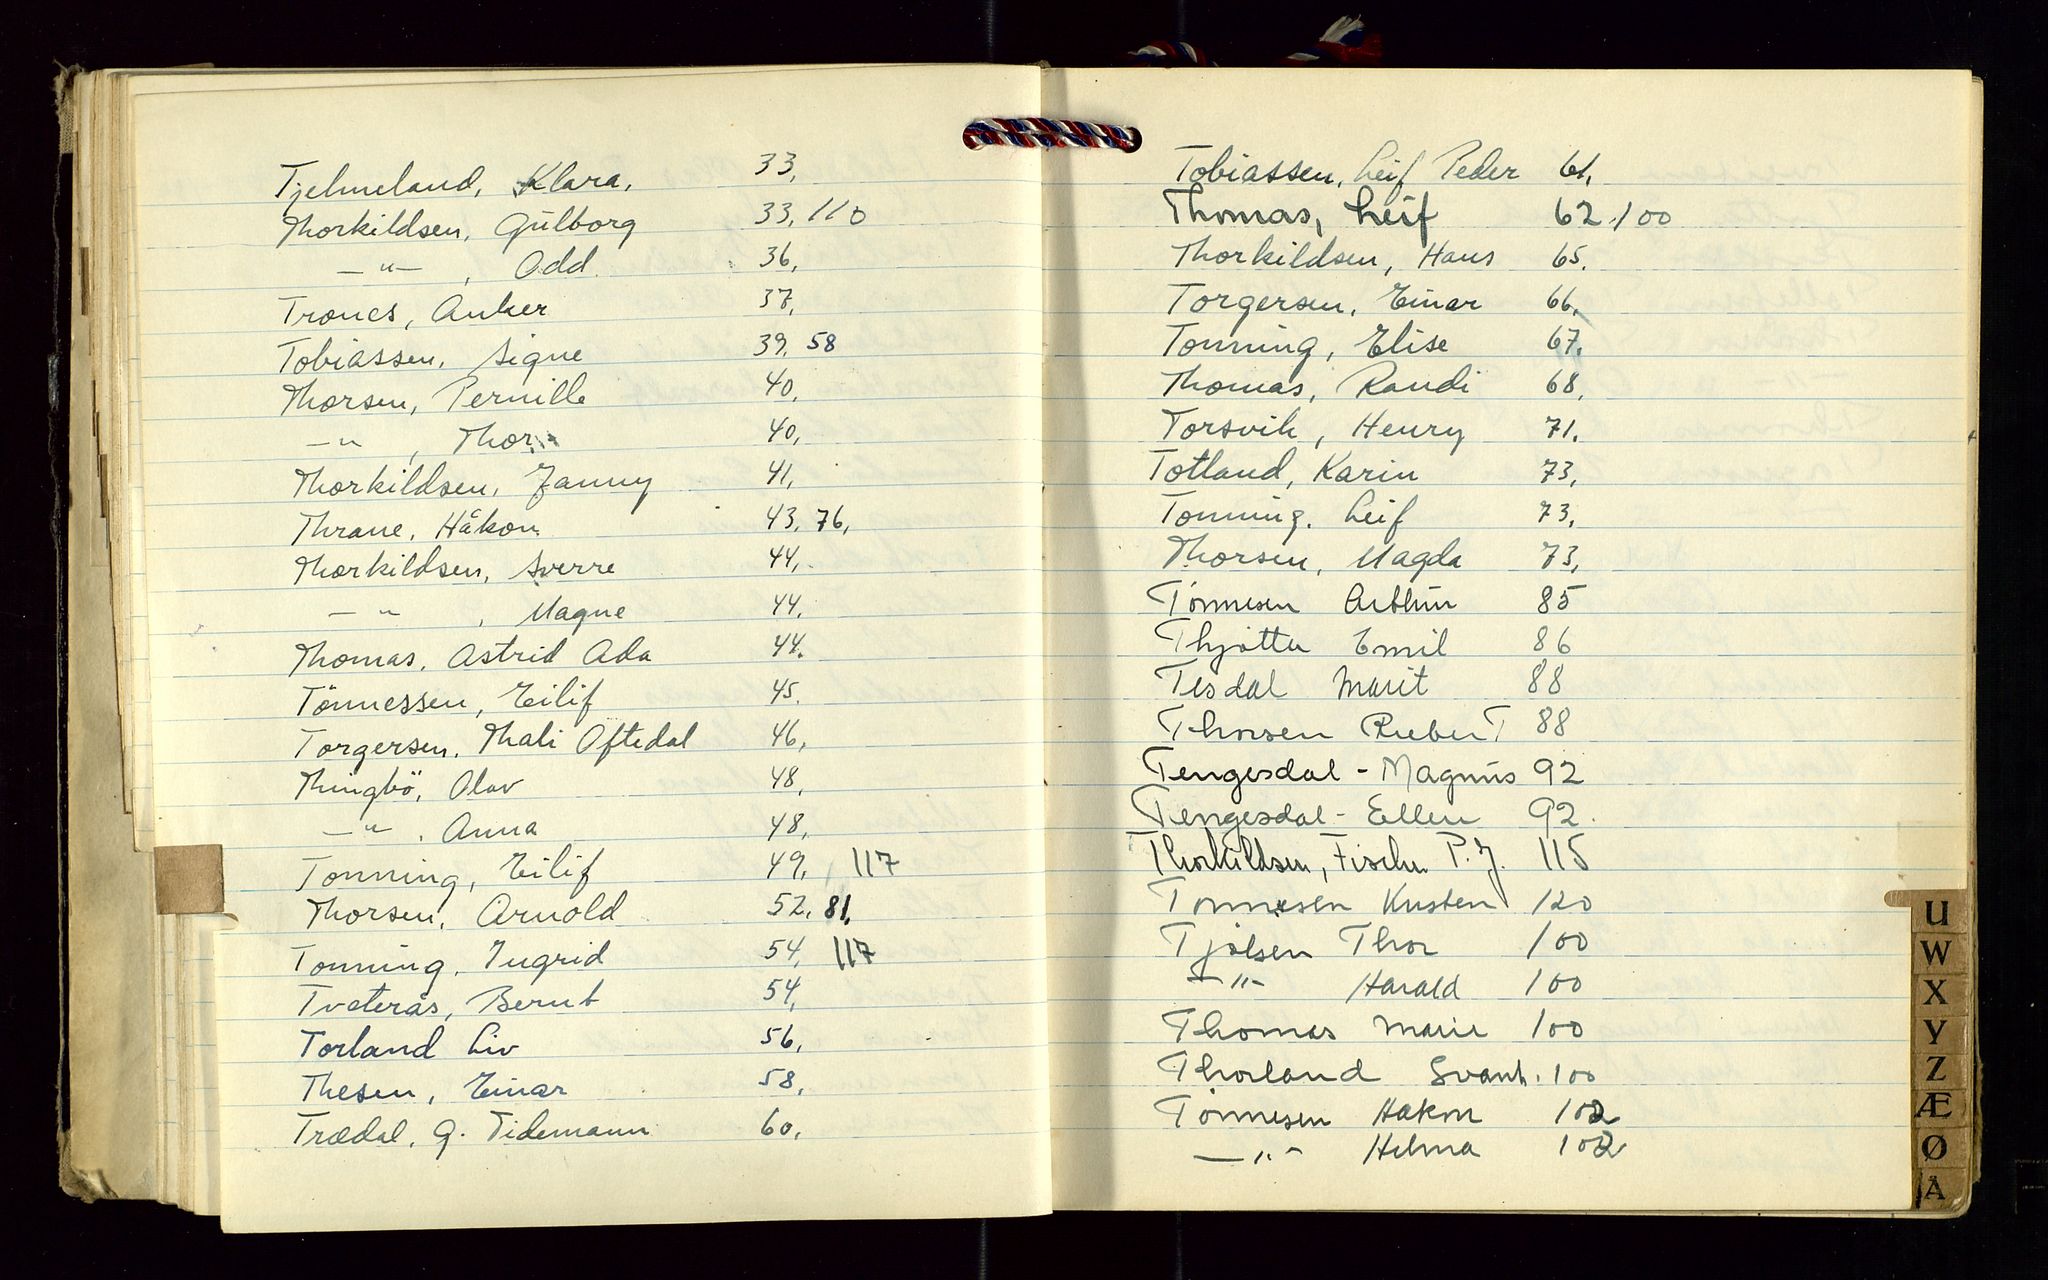 Tjelmeland, Klara, 33,
Thorkildsen, Gülborg 33, 110
— " — , Odd 36,
Trones, Anker 37,
Tobiassen, Signe 39, 58
Thorsen, Pernille 40,
— " , Thor 40,
Thorkildsen, Fanny 41,
Thrane, Håkon 43, 76,
Thorkildsen, Sverre 44,
— " — , Magne 44,
Thomas, Astrid Ada 44.
Tönnessen, Eilif 45.
Torgersen, Thali Oftedal 46,
Thingbö, Olav 48,
— " — , Anna 48,
Tonning, Eilif 49, , 117
Thorsen, Arnold 52, 81,
Tonning, Ingrid 54, 117
Tveterås, Bernt 54,
Torland Liv 56,
Thesen, Einar 58,
Trædal, G. Tidemann 60,
Tobiassen, Leif Peder 61,
Thomas, Leif 62, 100
Thorkildsen, Hans 65.
Torgersen, Einar 66,
Tonning, Elise 67,
Thomas, Randi 68,
Torsvik, Henry 71.
Totland, Karin 73,
Tonning, Leif 73,
Thorsen, Magda 73,
Tönnesen Arthur 85
Thjøtta Emil 86
Tesdal Marit 88
Thorsen Rieber T 88
Tengesdal - Magnus 92
Tengesdal - Ellen 92.
Thorkildsen, Fischer P. J. 115
Tønnesen Kirsten 120
Tjølsen Thor 100
— " — Harald 100
Thomas Marie 100
Thorland Svanh. 100
Tönnesen Hakon 102
— " — Helma 102
U
W
X
Y
Z
Æ
Ø
Å